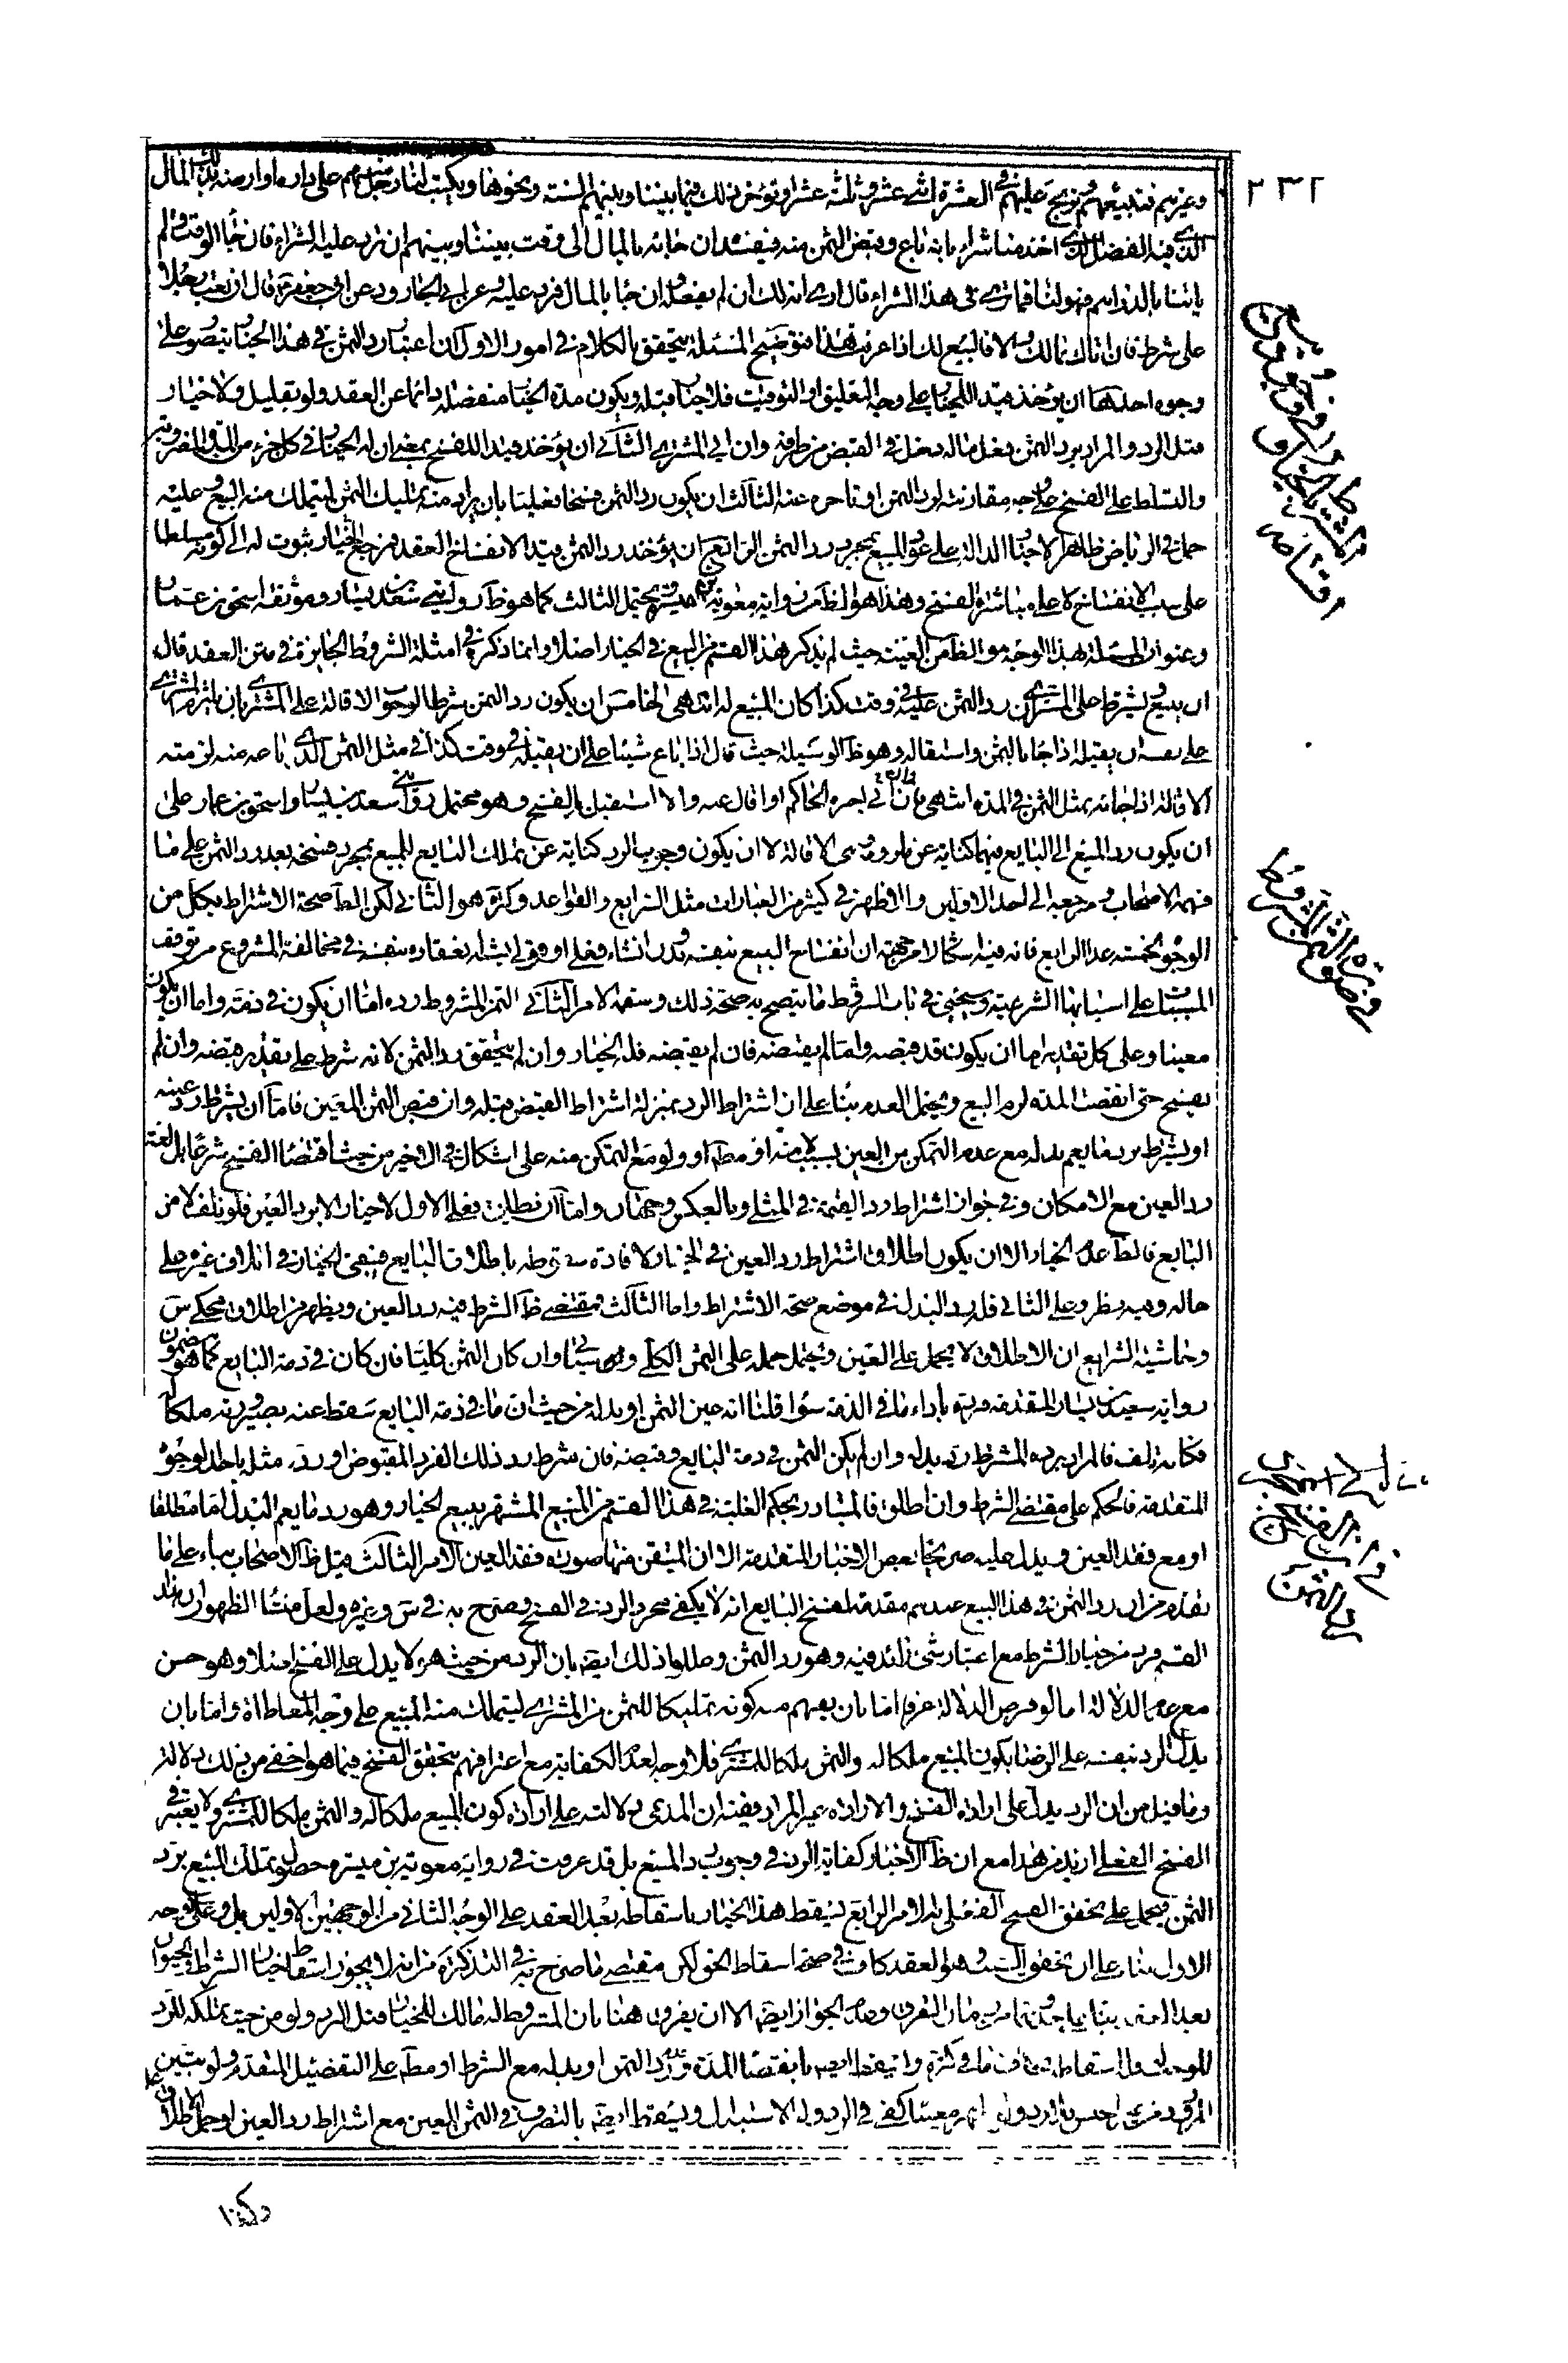 ٢٣٢
وغيرهم فنبيعهم ونربح عليهم في العشرة اثنى عشر وثلثة عشر ونؤخر ذلك فيما بيننا وبينهم السنة ونحوها ويكتب لنا رجل منهم على داره او ارضه بذلك المال
الذي فيه الفضل الذي اخذ منا شراء بانه باع وقبض الثمن منه فنعده ان جاء بالمال الى وقت بيننا وبينهم ان نرد عليه الشراء فان جاء الوقت ولم
ياتنا بالدراهم فهو لنا فما ترى في هذا الشراء قال ارى انه لك ان لم يفعل وان جاء بالمال فرد عليه وعن ابي الجارود عن ابي جعفر ع قال ان بعت رجلا
على شرط فان اتاك بمالك والا فالبيع لك اذا عرفت هذا فتوضيح المسئلة يتحقق بالكلام في امور الاول ان اعتبار رد الثمن في هذا الخيار يتصور على
وجوه احدها ان يؤخذ قيدا للخيار على وجه التعليق او التوقيت فلا خيار قبله ويكون مدة الخيار منفصلة دائما عن العقد ولو بقليل ولا خيار
قبل الرد والمراد برد الثمن فعل ماله دخل في القبض من طرفه وان ابى المشتري الثاني ان يؤخذ قيدا للفسخ بمعنى ان له الخيار في كل جزء من المدة المضروبة
والتسلط على الفسخ على وجه مقارنته لرد الثمن او تاخره عنه الثالث ان يكون رد الثمن فسخا فعليا بان يراد منه تمليك الثمن ليتملك منه المبيع وعليه
حمل في الرياض ظاهر الاخبار الدالة على عود المبيع بمجرد رد الثمن الرابع ان يؤخذ رد الثمن قيدا لانفساخ العقد فمرجع الخيار ثبوت له الى كونه مسلطا
على سبب الانفساخ لا على مباشرة الفسخ وهذا هو الظ من رواية معوية بن ميسرة ويحتمل الثالث كما هو ظ روايتي سعيد بن يسار وموثقة اسحق بن عمار
وعنوان المسئلة بهذا الوجه هو الظ من الغنية حيث لم يذكر هذا القسم من البيع في الخيار اصلا وانما ذكره في امثلة الشروط الجايزة في متن العقد قال
ان يبيع ويشترط على المشتري ان رد الثمن عليه في وقت كذا كان المبيع له انتهى الخامس ان يكون رد الثمن شرطا لوجوب الاقالة على المشتري بان يلتزم المشتري
على نفسه ان يقيله اذا جاء بالثمن واستقاله وهو ظ الوسيلة حيث قال اذا باع شيئا على ان يقيله في وقت كذا في مثل الثمن الذي باعه منه لزمته
الاقالة اذا جاءه بمثل الثمن في المدة انتهى فان ابى اجبره الحاكم او اقال عنه والا استقل بالفسخ وهو محتمل روايتي سعيد بن يسار واسحق بن عمار على
ان يكون رد المبيع الى البايع فيهما كناية عن ملزومه وهي الاقالة لا ان يكون وجوب الرد كناية عن تملك البايع للمبيع بمجرد فسخه بعد رد الثمن على ما
فهمه الاصحاب ومرجعه الى احد الاولين والاظهر في كثير من العبارات مثل الشرايع والقواعد وكرة هو الثاني لكن الظ صحة الاشتراط بكل من
الوجوه الخمسة عدا الرابع فان فيه اشكالا من جهة ان انفساخ البيع بنفسه بدون انشاء فعلي او قولي يشبه انعقاده بنفسه في مخالفة المشروع من توقف
المسببات على اسبابها الشرعية وسيجيء في باب الشروط ما يتضح به صحة ذلك وسقمه الامر الثاني الثمن المشروط رده اما ان يكون في ذمته واما ان يكون
معينا وعلى كل تقدير اما ان يكون قد قبضه واما لم يقبضه فان لم يقبضه فله الخيار وان لم يتحقق رد الثمن لانه شرط على تقدير قبضه وان لم
يفسخ حتى انقضت المدة لزم البيع ويحتمل العدم بناء على ان اشتراط الرد بمنزلة اشتراط القبض قبله وان قبض الثمن المعين فاما ان يشترط رد عينه
او يشترط رد ما يعم بدله مع عدم التمكن من العين بسبب لا منه او مط او ولو مع التمكن منه على اشكال في الاخير من حيث اقتضاء الفسخ شرعا بل لغة
رد العين مع الامكان وفي جواز اشتراط رد القيمة في المثلي وبالعكس وجهان واما ان يطلق فعلى الاول لا خيار الا برد العين فلو تلف لا من
البايع فالظ عدم الخيار الا ان يكون اطلاق اشتراط رد العين في الخيار لافادة سقوطه باتلاف البايع فيبقى الخيار في اتلاف غيره على
حاله وفيه نظر وعلى الثاني فله رد البدل في موضع صحة الاشتراط واما الثالث فمقتضى ظ الشرط فيه رد العين ويظهر من اطلاق محكي س
وحاشية الشرايع ان الاطلاق لا يحمل على العين ويحتمل حمله على الثمن الكلي وسيأتي وان كان الثمن كليا فان كان في ذمة البايع كما هو مضمون
رواية سعيد بن يسار المتقدمة فرده باداء ما في الذمة سواء قلنا انه عين الثمن او بدله من حيث ان ما في ذمة البايع سقط عنه بصيرورته ملكا له
فكانه تلف فالمراد برده المشترط رد بدله وان لم يكن الثمن في ذمة البايع وقبضه فان شرط رد ذلك الفرد المقبوض او رد مثله باحد الوجوه
المتقدمة فالحكم على مقتضى الشرط وان اطلق فالمتبادر بحكم الغلبة في هذا القسم من البيع المشتهر ببيع الخيار وهو رد ما يعم البدل اما مطلقا
او مع فقد العين ويدل عليه صريحا بعض الاخبار المتقدمة الا ان المتيقن منها صورة فقد العين الامر الثالث قيل ظ الاصحاب بناء على ما
تقدم من ان رد الثمن في هذا البيع عندهم مقدمة لفسخ البايع انه لا يكفي مجرد الرد في الفسخ وصرح به في س وغيره ولعل منشا الظهور ان هذا
القسم فرد من خيار الشرط مع اعتبار شيء زائد فيه وهو رد الثمن وعللوا ذلك ايضا بان الرد من حيث هو لا يدل على الفسخ اصلا وهو حسن
مع عدم الدلالة اما لو فرض الدلالة عرفا اما بان يفهم منه كونه تمليكا للثمن من المشتري ليتملك منه المبيع على وجه المعاطاة واما بان
يدل الرد بنفسه على الرضا بكون المبيع ملكا له والثمن ملكا للمشتري فلا وجه لعدم الكفاية مع اعترافهم بتحقق الفسخ فيما هو اخفى من ذلك دلالة
وما قيل من ان الرد يدل على ارادة الفسخ والارادة غير المراد ففيه ان المدعى دلالته على ارادة كون المبيع ملكا له والثمن ملكا للمشتري ولا يعتبر في
الفسخ الفعلي ازيد من هذا مع ان ظ الاخبار كفاية الرد في وجوب رد المبيع بل قد عرفت في رواية معوية بن ميسرة حصول تملك المبيع برد
الثمن فيحمل على تحقق الفسخ الفعلي به الامر الرابع يسقط هذا الخيار باسقاطه بعد العقد على الوجه الثاني من الوجهين الاولين بل وعلى الوجه
الاول بناء على ان تحقق السبب وهو العقد كاف في صحة اسقاط الحق لكن مقتضى ما صرح به في التذكرة من انه لا يجوز اسقاط خيار الشرط او الحيوان
بعد العقد بناء على حدوثهما من زمان التفرق عدم الجواز ايضا الا ان يفرق هنا بان المشروط له مالك للخيار قبل الرد ولو من حيث تملكه للرد
الموجب له فله اسقاطه بخلاف ما في كرة ويسقط ايضا بانقضاء المدة وعدم رد الثمن او بدله مع الشرط او مط على التفصيل المتقدم ولو تبين
المردود من غير الجنس فلا رد ولو ظهر معيبا كفى في الرد وله الاستبدال ويسقط ايضا بالتصرف في الثمن المعين مع اشتراط رد العين او حمل الاطلاق